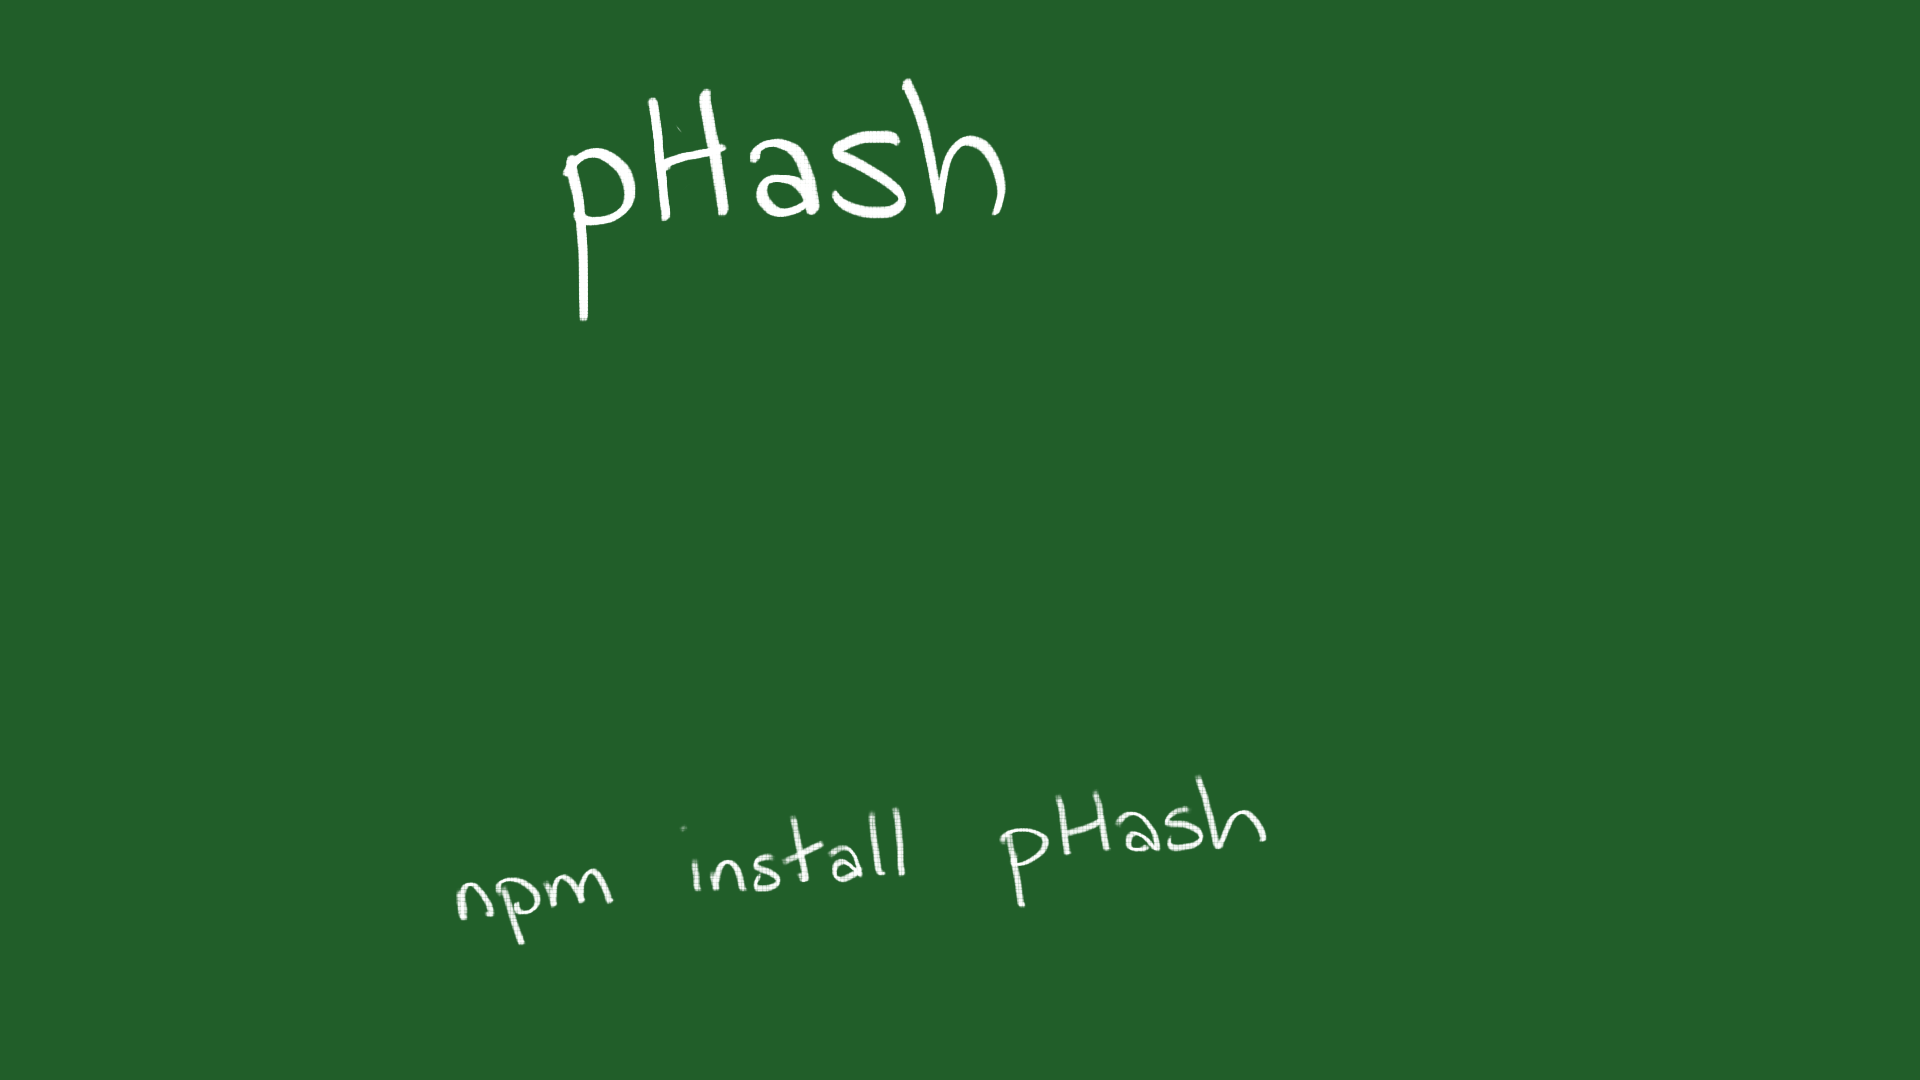 pHash
npm install pHash